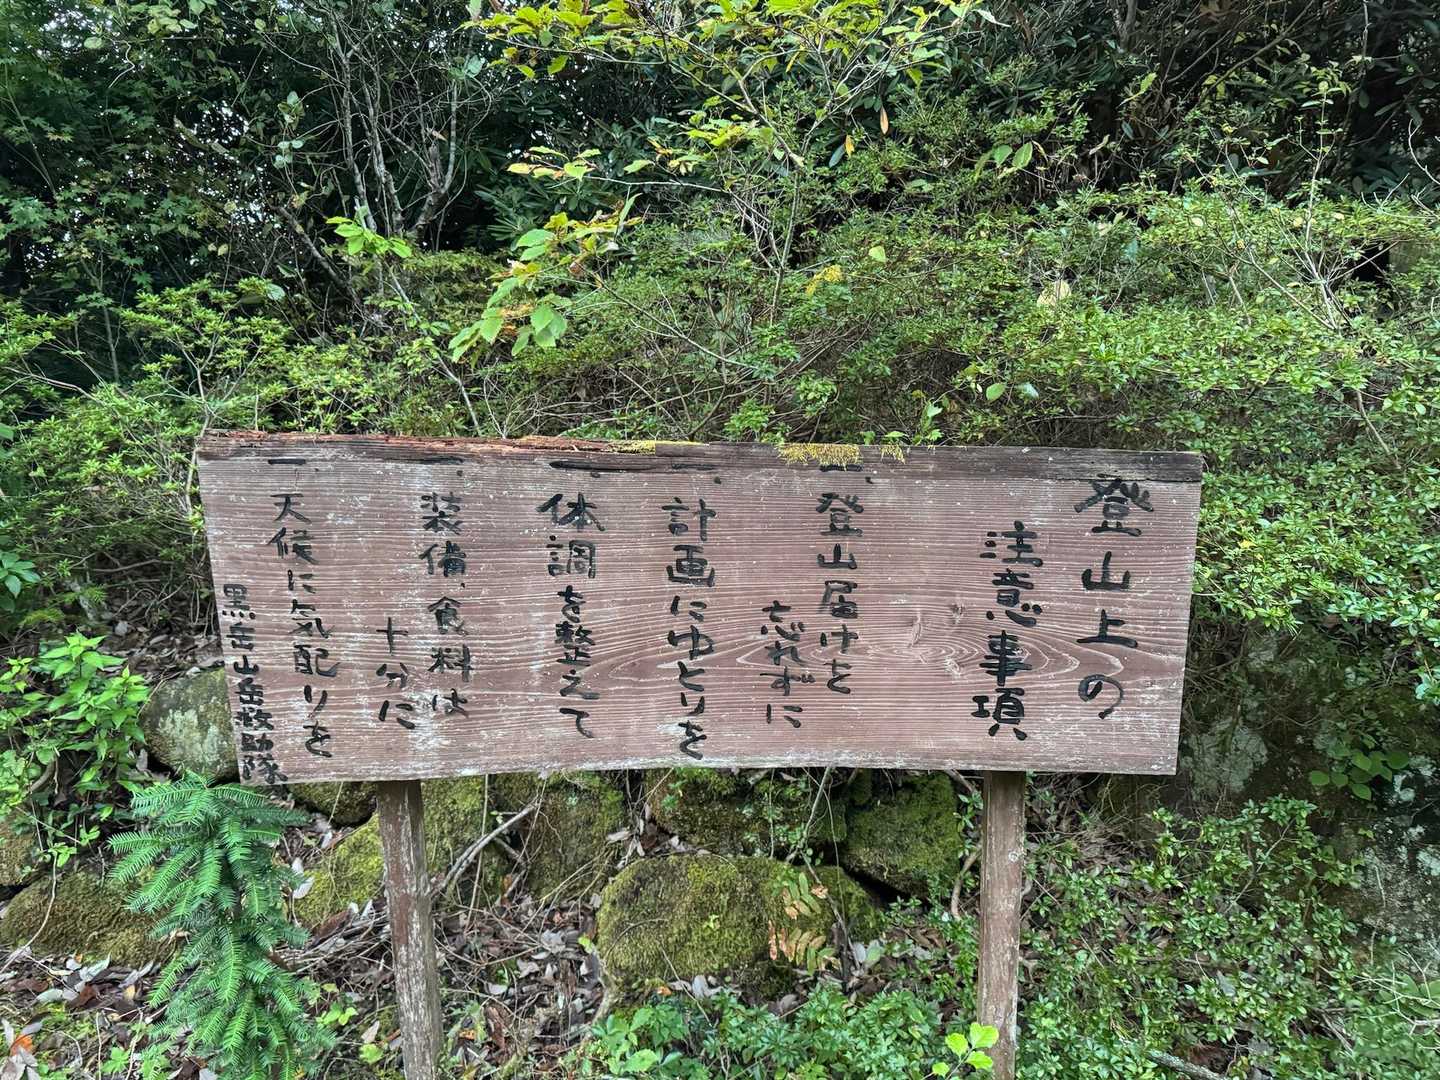 登山上の
注意事項
一、登山届けを
忘れずに
一、計画にゆとりを
一、体調を整えて
一、装備、食料は
十分に
一、天候に気配りを
黒岳山岳救助隊